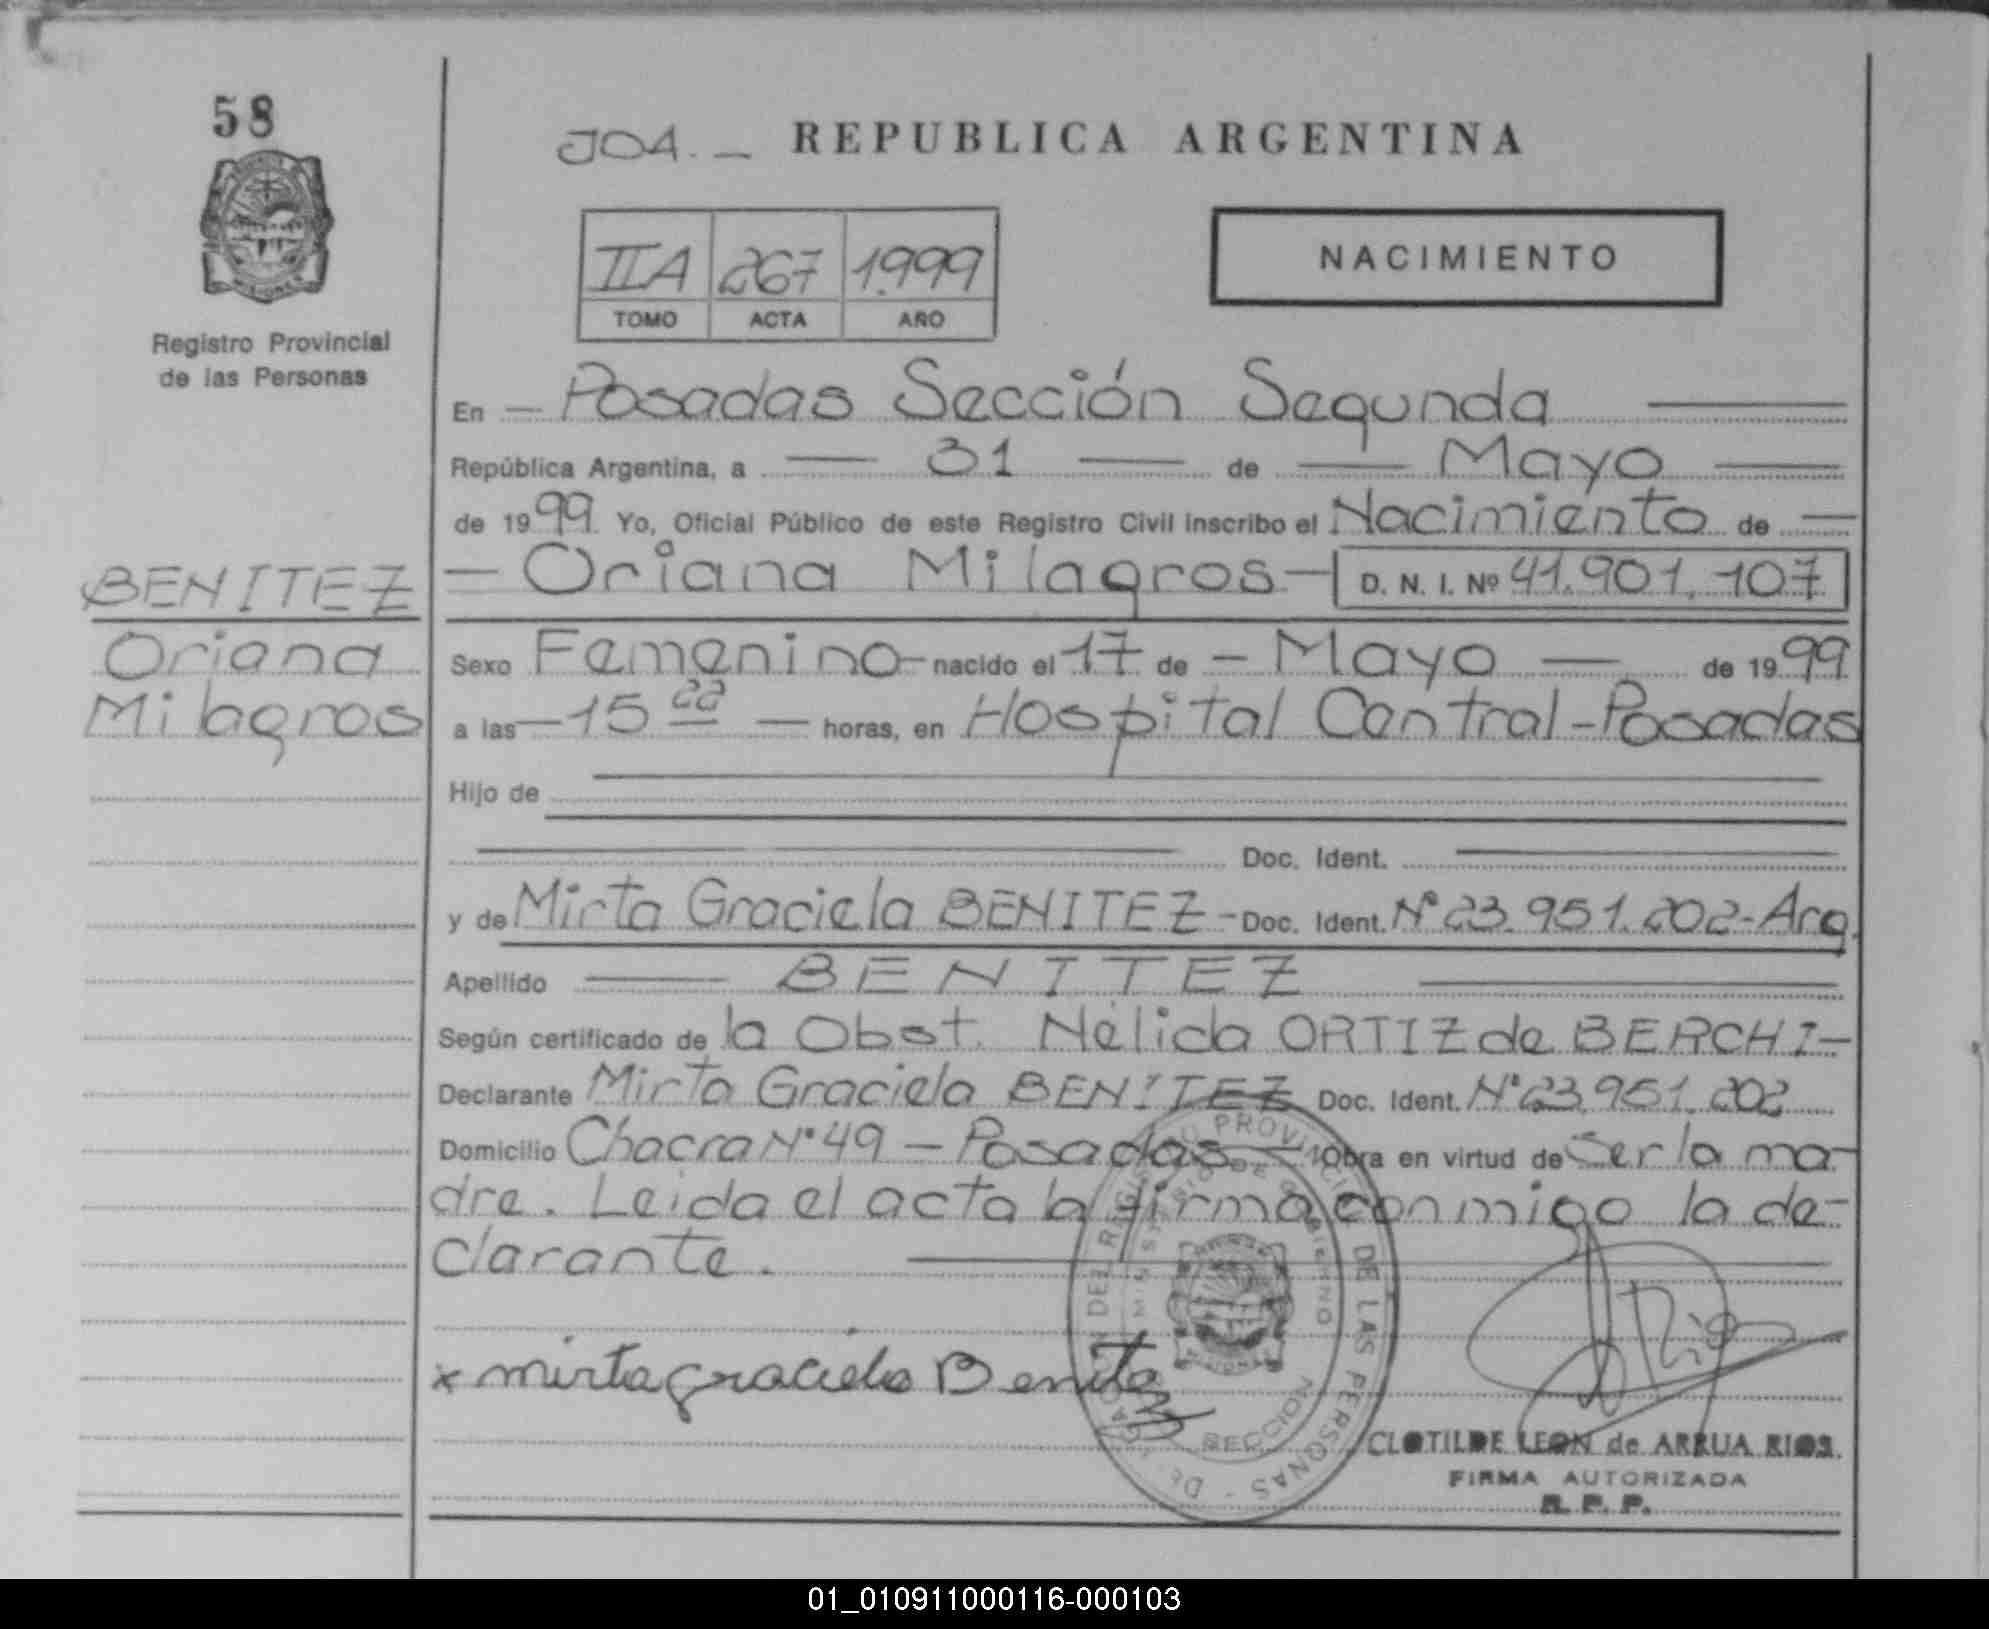 58
JOA.—  REPUBLICA ARGENTINA
IIA 267 1999
TOMO ACTA AÑO
NACIMIENTO
Registro Provincial
de las Personas
En — Posadas Sección Segunda —
República Argentina, a — 31 — de — Mayo —
de 1999. Yo, Oficial Público de este Registro Civil inscribo el Nacimiento de —
— Oriana Milagros — D. N. I. Nº 41.901.107
BENITEZ
Oriana
Milagros
Sexo Femenino — nacido el 17 de — Mayo — de 1999
a las — 15 — horas, en Hospital Central - Posadas
Hijo de
Doc. Ident.
y de Mirta Graciela BENITEZ - Doc. Ident. Nº 23.951.202 - Arg.
Apellido — BENITEZ —
Según certificado de la Obst. Nélida ORTIZ de BERCHI —
Declarante Mirta Graciela BENITEZ Doc. Ident. Nº 23.951.202
Domicilio Chacra Nº 49 — Posadas — Obra en virtud de Ser la ma-
dre. Leida el acta la firma conmigo la de-
clarante.
x mirta graciela Benitez
DEL REGISTRO PROVINCIAL DE LAS PERSONAS
MINISTERIO DE GOBIERNO
SECCION
CLOTILDE LEON de ARRUA RIOS
FIRMA AUTORIZADA
R. P. P.
01_010911000116-000103